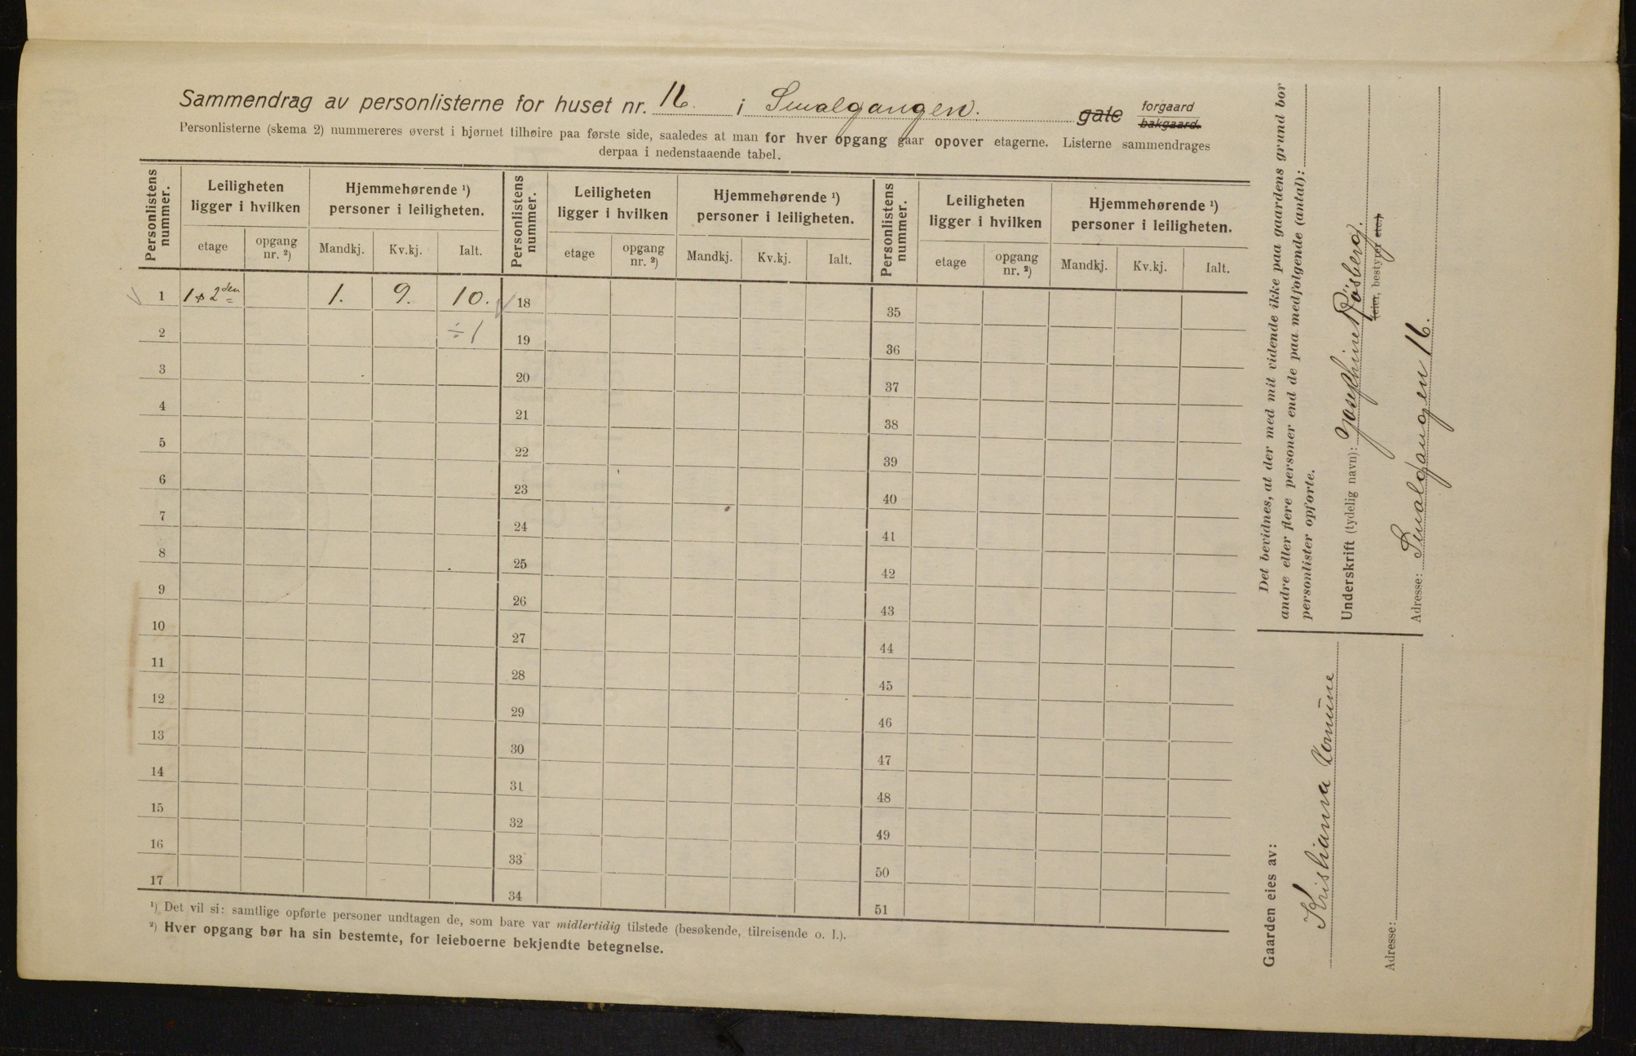 Sammendrag av personlisterne for huset nr. 16. i Smalgangen. gate forgaard bakgaard.
Personlisterne (skema 2) nummereres øverst i hjørnet tilhøire paa første side, saaledes at man for hver opgang gaar opover etagerne. Listerne sammendrages
derpaa i nedenstaaende tabel.
Personlistens nummer. Leiligheten ligger i hvilken Hjemmehørende ¹) personer i leiligheten. Personlistens nummer. Leiligheten ligger i hvilken Hjemmehørende ¹) personer i leiligheten. Personlistens nummer. Leiligheten ligger i hvilken Hjemmehørende ¹) personer i leiligheten.
etage opgang nr. ²) Mandkj. Kv.kj. Ialt. etage opgang nr. ²) Mandkj. Kv.kj. Ialt. etage opgang nr. ²) Mandkj. Kv.kj. Ialt.
1 1 + 2den 1. 9. 10. 18 35
2 ÷ 1 19 36
3 20 37
4 21 38
5 22 39
6 23 40
7 24 41
8 25 42
9 26 43
10 27 44
11 28 45
12 29 46
13 30 47
14 31 48
15 32 49
16 33 50
17 34 51
¹) Det vil si: samtlige opførte personer undtagen de, som bare var midlertidig tilstede (besøkende, tilreisende o. l.).
²) Hver opgang bør ha sin bestemte, for leieboerne bekjendte betegnelse.
Det bevidnes, at der med mit vidende ikke paa gaardens grund bor
andre eller flere personer end de paa medfølgende (antal):
personlister opførte.
Underskrift (tydelig navn): Josephine Røsberg.
(eier, bestyrer etc.)
Adresse: Smalgangen 16.
Gaarden eies av:
Kristiania Comune
Adresse: